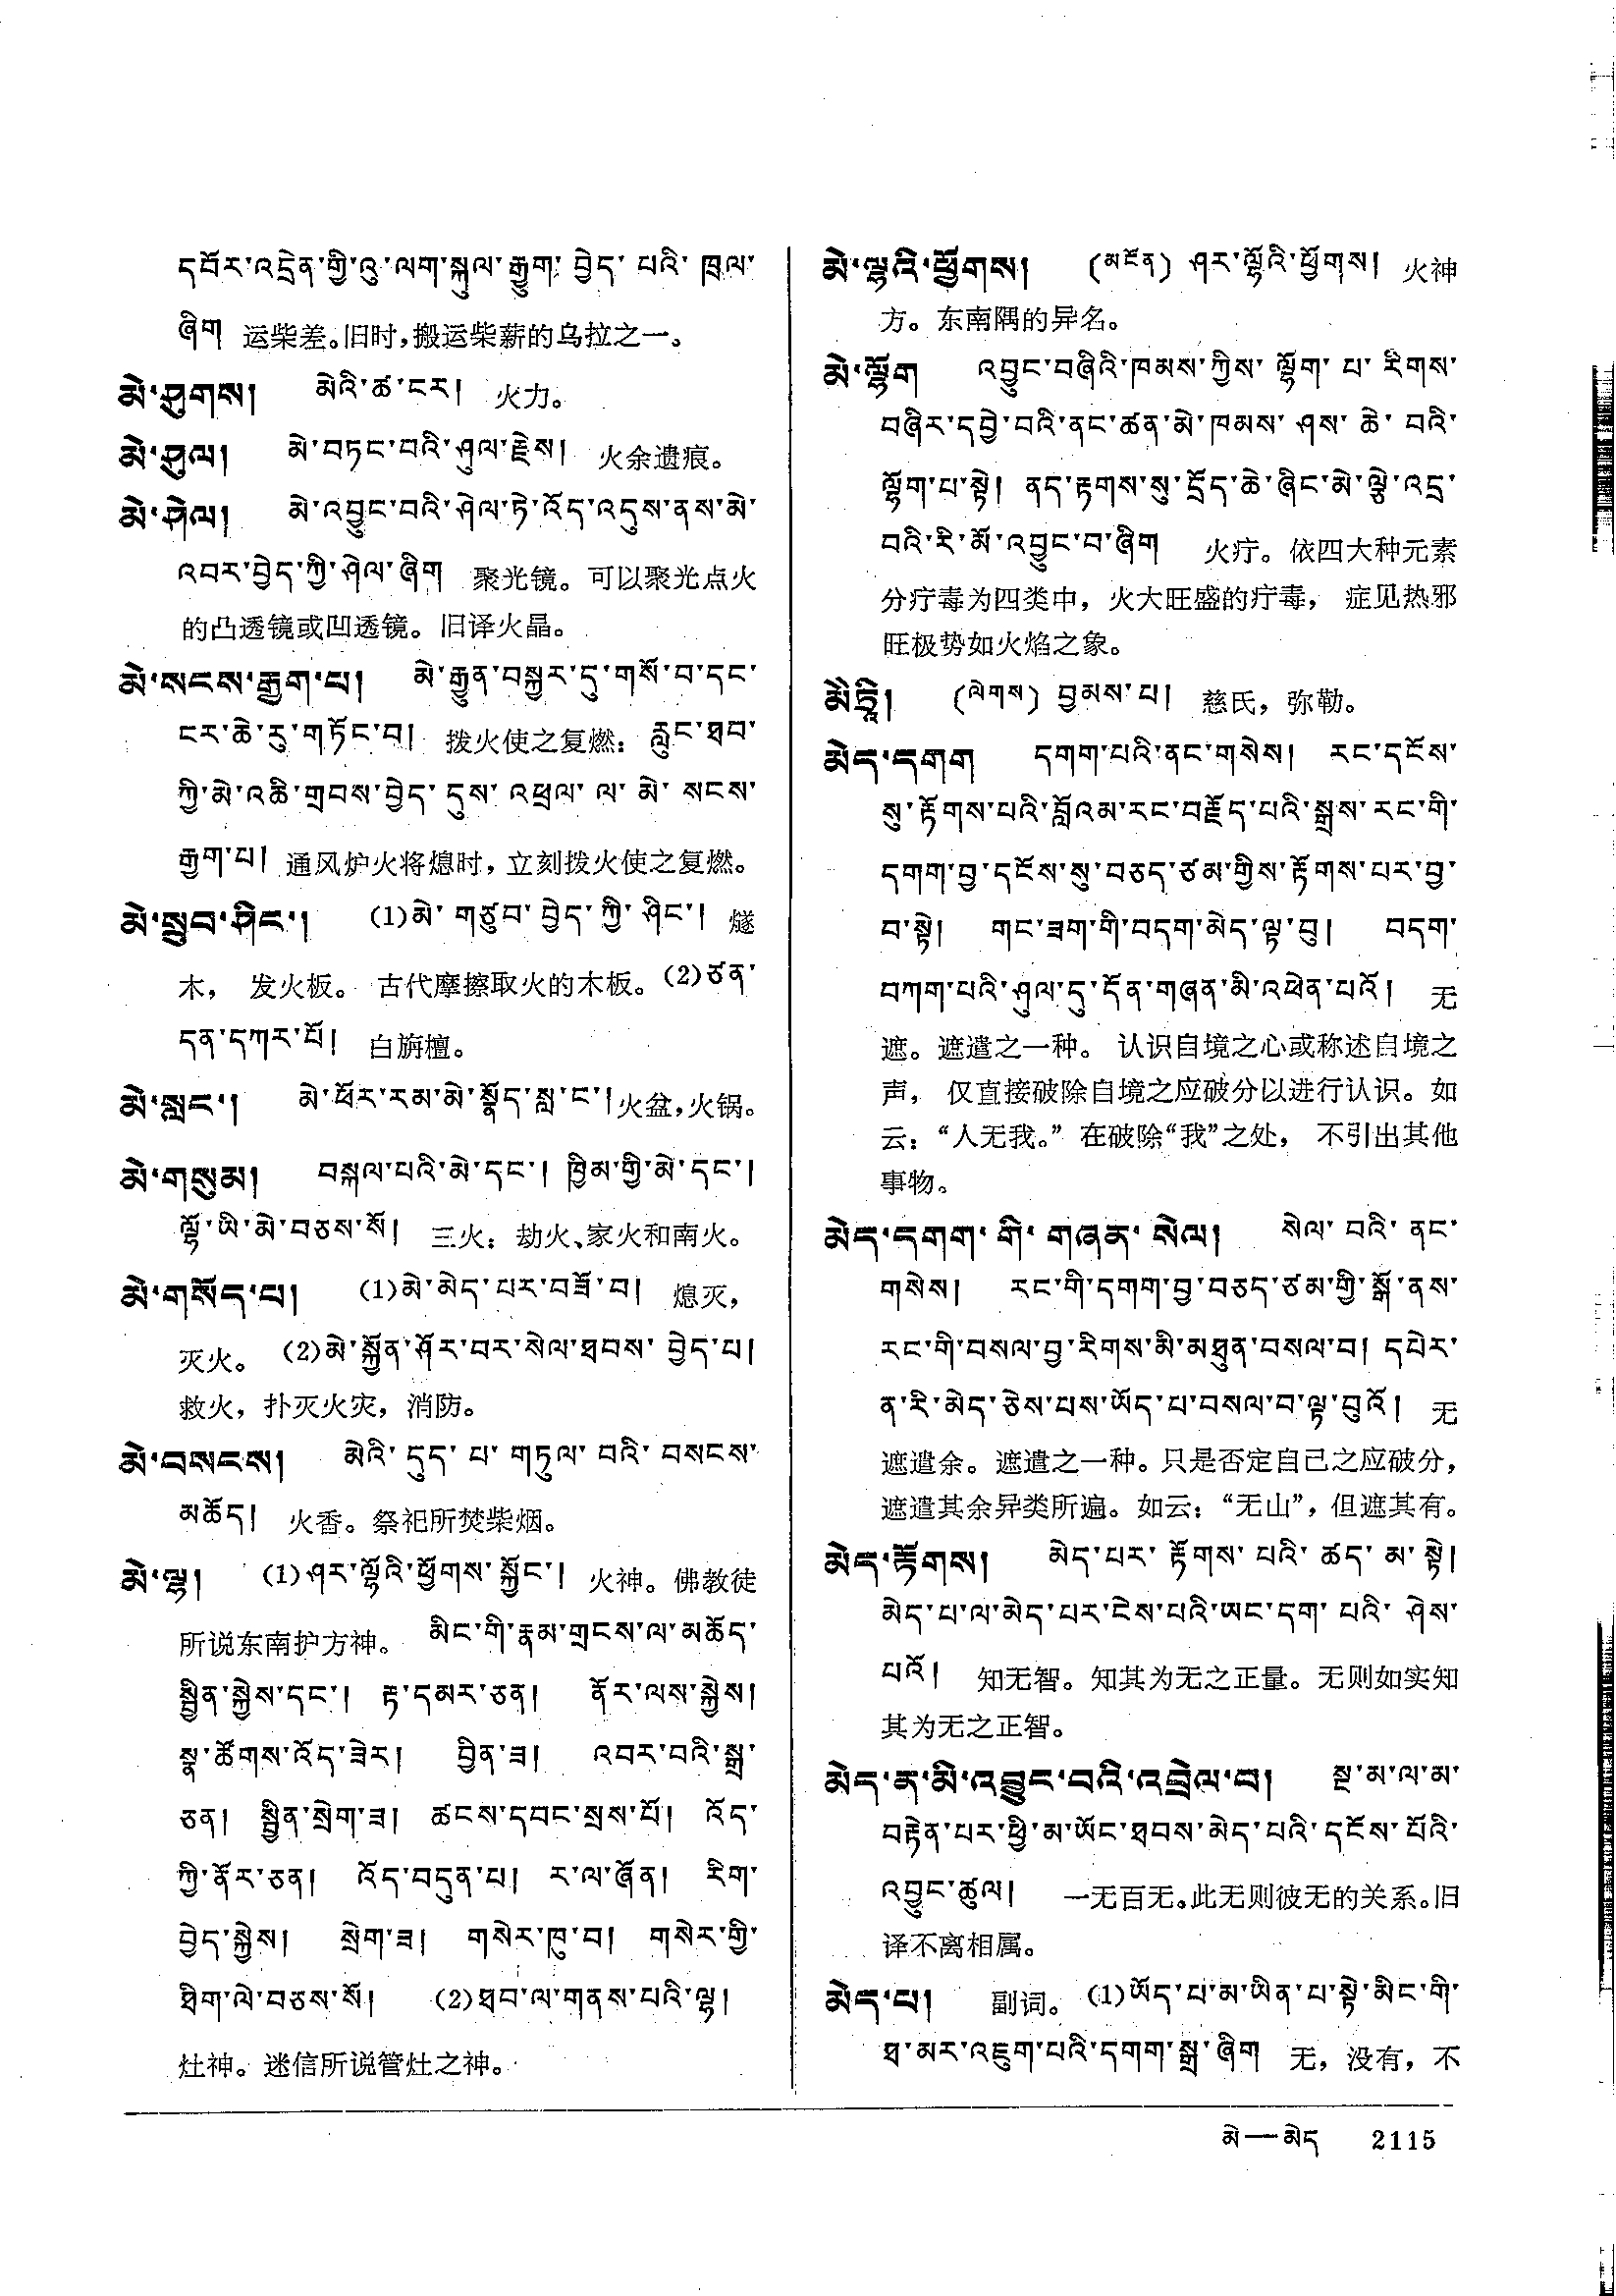 དབོར་འདྲེན་གྱི་འུ་ལག་སྐུལ་རྒྱུག་ བྱེད་ པའི་ ཁྲལ་
ཞིག 运柴差。旧时,搬运柴薪的乌拉之一。
མེ་ཤུགས། མེའི་ཚ་ངར། 火力。
མེ་ཤུལ། མེ་བཏང་བའི་ཤུལ་རྗེས། 火余遗痕。
མེ་ཤེལ། མེ་འབྱུང་བའི་ཤེལ་ཏེ་འོད་འདུས་ནས་མེ་
འབར་བྱེད་ཀྱི་ཤེལ་ཞིག 聚光镜。可以聚光点火
的凸透镜或凹透镜。旧译火晶。
མེ་སངས་རྒྱག་པ། མེ་རྒྱུན་བསྐྱར་དུ་གསོ་བ་དང་
ངར་ཆེ་རུ་གཏོང་བ། 拨火使之复燃: རླུང་ཐབ་
ཀྱི་མེ་འཆི་གྲབས་བྱེད་ དུས་ འཕྲལ་ ལ་ མེ་ སངས་
རྒྱག་པ། 通风炉火将熄时,立刻拨火使之复燃。
མེ་སྲུབ་ཤིང་། (1)མེ་ གཙུབ་ བྱེད་ ཀྱི་ ཤིང་། 燧
木, 发火板。 古代摩擦取火的木板。(2)ཙན་
དན་དཀར་པོ། 白旃檀。
མེ་སླང་། མེ་ཕོར་རམ་མེ་སྣོད་སླ་ང་།火盆,火锅。
མེ་གསུམ། བསྐལ་པའི་མེ་དང་། ཁྱིམ་གྱི་མེ་དང་།
ལྷོ་ཡི་མེ་བཅས་སོ། 三火: 劫火、家火和南火。
མེ་གསོད་པ། (1)མེ་མེད་པར་བཟོ་བ། 熄灭,
灭火。 (2)མེ་སྐྱོན་ཤོར་བར་སེལ་ཐབས་ བྱེད་པ།
救火, 扑灭火灾, 消防。
མེ་བསངས། མེའི་ དུད་ པ་ གཏུལ་ བའི་ བསངས་
མཆོད། 火香。祭祀所焚柴烟。
མེ་ལྷ། (1)ཤར་ལྷོའི་ཕྱོགས་སྐྱོང་། 火神。佛教徒
所说东南护方神。 མིང་གི་རྣམ་གྲངས་ལ་མཆོད་
སྦྱིན་སྐྱེས་དང་། རྟ་དམར་ཅན། ནོར་ལས་སྐྱེས།
སྣ་ཚོགས་འོད་ཟེར། བྱིན་ཟ། འབར་བའི་སྒྲ་
ཅན། སྦྱིན་སྲེག་ཟ། ཚངས་དབང་སྲས་པོ། འོད་
ཀྱི་ནོར་ཅན། འོད་བདུན་པ། ར་ལ་ཞོན། རིག་
བྱེད་སྐྱེས། སྲེག་ཟ། གསེར་ཁུ་བ། གསེར་གྱི་
ཐིག་ལེ་བཅས་སོ། (2)ཐབ་ལ་གནས་པའི་ལྷ།
灶神。迷信所说管灶之神。
མེ་ལྷའི་ཕྱོགས། (མངོན) ཤར་ལྷོའི་ཕྱོགས། 火神
方。东南隅的异名。
མེ་ལྷོག འབྱུང་བཞིའི་ཁམས་ཀྱིས་ ལྷོག་ པ་ རིགས་
བཞིར་དབྱེ་བའི་ནང་ཚན་མེ་ཁམས་ ཤས་ ཆེ་ བའི་
ལྷོག་པ་སྟེ། ནད་རྟགས་སུ་དྲོད་ཆེ་ཞིང་མེ་ལྕེ་འདྲ་
བའི་རི་མོ་འབྱུང་བ་ཞིག 火疔。依四大种元素
分疔毒为四类中, 火大旺盛的疔毒, 症见热邪
旺极势如火焰之象。
མཻ་ཏྲཱི། (ལེགས) བྱམས་པ། 慈氏, 弥勒。
མེད་དགག དགག་པའི་ནང་གསེས། རང་དངོས་
སུ་རྟོགས་པའི་བློའམ་རང་བརྗོད་པའི་སྒྲས་རང་གི་
དགག་བྱ་དངོས་སུ་བཅད་ཙམ་གྱིས་རྟོགས་པར་བྱ་
བ་སྟེ། གང་ཟག་གི་བདག་མེད་ལྟ་བུ། བདག་
བཀག་པའི་ཤུལ་དུ་དོན་གཞན་མི་འཕེན་པའོ། 无
遮。遮遣之一种。 认识自境之心或称述自境之
声, 仅直接破除自境之应破分以进行认识。如
云: “人无我。” 在破除“我”之处, 不引出其他
事物。
མེད་དགག་ གི་ གཞན་ སེལ། སེལ་ བའི་ ནང་
གསེས། རང་གི་དགག་བྱ་བཅད་ཙམ་གྱི་སྒོ་ནས་
རང་གི་བསལ་བྱ་རིགས་མི་མཐུན་བསལ་བ། དཔེར་
ན་རི་མེད་ཅེས་པས་ཡོད་པ་བསལ་བ་ལྟ་བུའོ། 无
遮遣余。遮遣之一种。只是否定自己之应破分,
遮遣其余异类所遍。如云: “无山”, 但遮其有。
མེད་རྟོགས། མེད་པར་ རྟོགས་ པའི་ ཚད་ མ་ སྟེ།
མེད་པ་ལ་མེད་པར་ངེས་པའི་ཡང་དག་ པའི་ ཤེས་
པའོ། 知无智。知其为无之正量。无则如实知
其为无之正智。
མེད་ན་མི་འབྱུང་བའི་འབྲེལ་བ། སྔ་མ་ལ་མ་
བརྟེན་པར་ཕྱི་མ་ཡོང་ཐབས་མེད་པའི་དངོས་པོའི་
འབྱུང་ཚུལ། 一无百无。此无则彼无的关系。旧
译不离相属。
མེད་པ། 副词。 (1)ཡོད་པ་མ་ཡིན་པ་སྟེ་མིང་གི་
ཐ་མར་འཇུག་པའི་དགག་སྒྲ་ཞིག 无, 没有, 不
མེ—མེད 2115